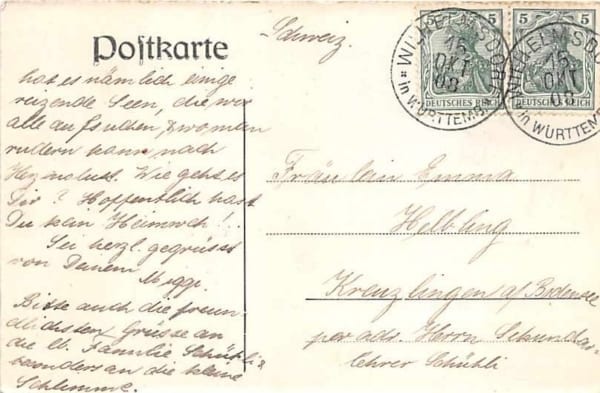 Postkarte
Schweiz.
5 5 5
WILHELMSDORF
15
OKT
08
in WÜRTTEMB.
DEUTSCHES REICH
WILHELMSDO
15
OKT
08
in WÜRTTEMB
DEUTSCHES REICH
hat es nämlich einige
reizende Seen, die wir
alle aufsuchten, & wo man
rudern kann, nach
Herzenslust. Wie geht es
Dir? Hoffentlich hast
Du kein Heimweh!
Sei herzl. gegrüsst
von Deinem
Miggi.
Bitte auch die freun
dlichsten Grüsse an
die lb. Familie Schühli &
besonders an die kleine
Schlimme.
Fräulein Emma
Helbling
Kreuzlingen a/ Bodensee
per ads. Herrn Sekundar-
lehrer Schühli